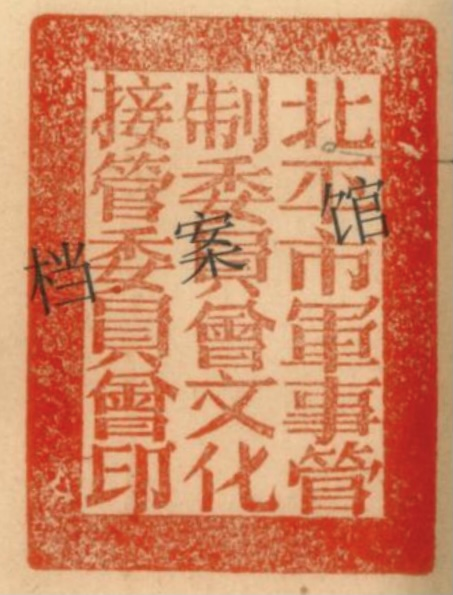 北平市軍事管
制委員會文化
接管委員會印
档案馆